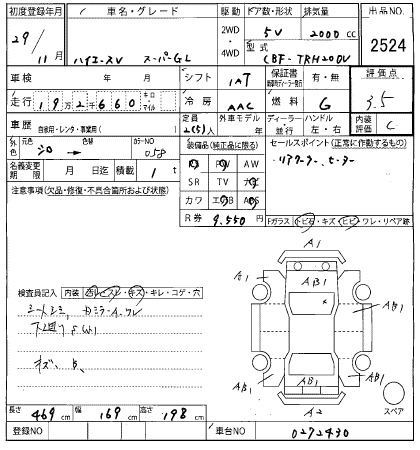 初度登録年月 車名・グレード 駆動 ドア数・形状 排気量 出品NO.
29/11月 ハイエースV スーパーGL 2WD・4WD 5V 2000cc 2524
型式 CBF-TRH200V
車検 年 月 シフト IAT 保証書 有・無 評価点
走行 19万2千660 キロ・マイル 冷房 AAC 燃料 G 3.5
車歴 自家用・レンタ・事業用( ) 定員 2(5)人 外車モデル年 ディーラー・並行 ハンドル 左・右 内装評価 C
外色 元色 シロ → 色替 カラーNO 058 装備品(純正品に限る) セールスポイント(正常に作動するもの)
名義変更期限 月 日迄 積載 1t リアクーラー、ヒーター
注意事項(欠品・修復・不具合箇所および状態) SR TV ナビ
カワ エアB ABS
R券 9,550円 Fガラス トビ石・キズ・ヒビ・ワレ・リペア跡
A1
AB1
検査員記入 内装 ヨゴレ・スレ・キズ・キレ・コゲ・穴
シートシミ
下廻り SW1
キズ、
AB1
AB1
AB1
A2
スペア
長さ 469cm 幅 169cm 高さ 198cm
登録NO 車台NO 0272430